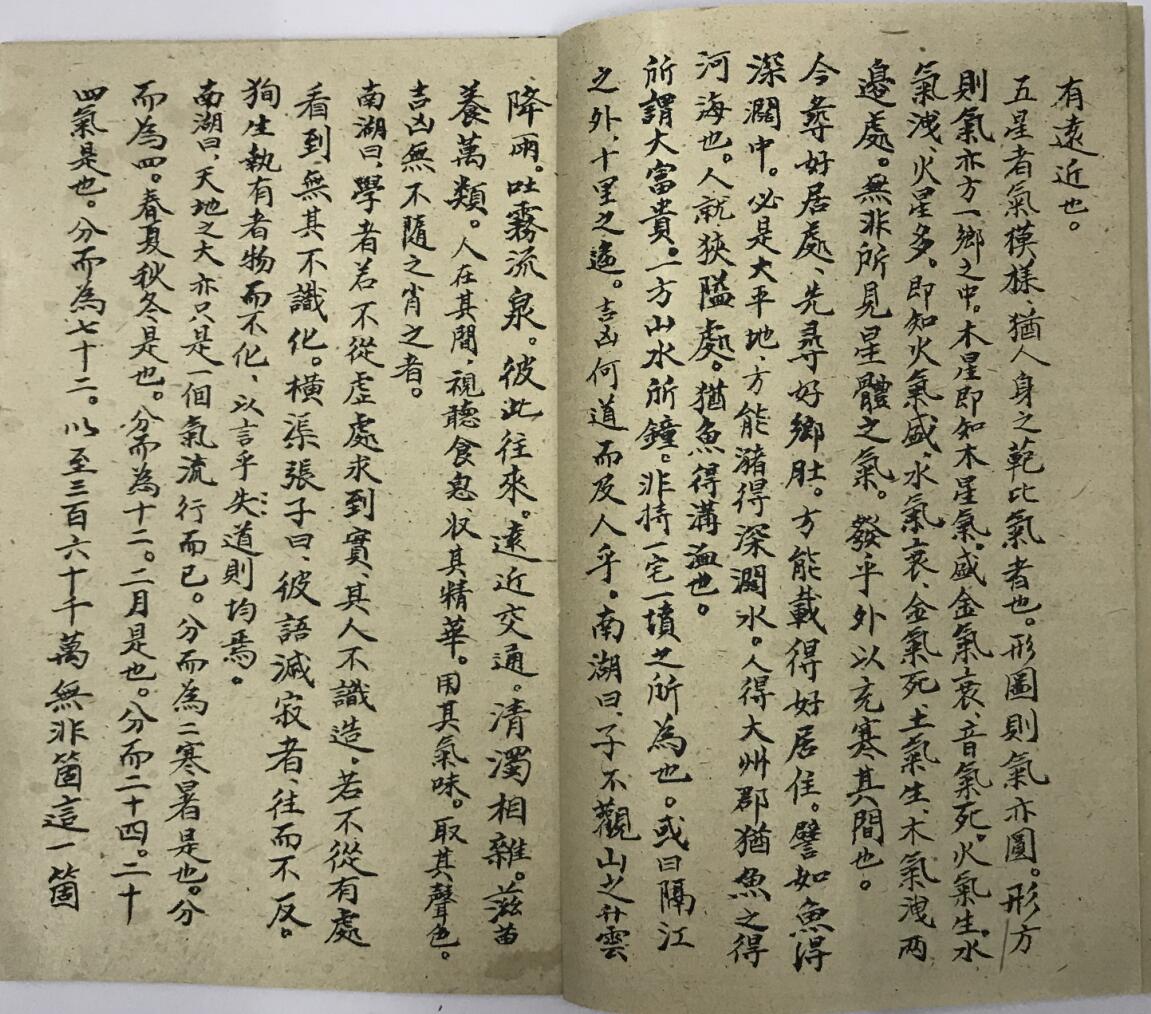 有遠近也。
五星者氣模樣、猶人身之範比氣者也。形圖則氣亦圖。形方
則氣亦方一鄉之中。木星即知木星氣。盛金氣衰、音氣死。火氣生。水
氣洩、火星多。即知火氣盛、水氣衰、金氣死、土氣生、木氣洩两
邉處。無非所見星體之氣。發乎外以充寒其間也。
今尋好居處、先尋好鄉肚。方能載得好居住。譬如魚得
深濶中。必是大平地、方能瀦得深濶水。人得大州郡猶魚之得
河海也。人就狹隘處。猶魚得溝洫也。
所謂大富貴。一方山水所鐘。非持一宅一墳之所為也。或曰隔江
之外、十里之遥。吉凶何道而及人乎。南湖曰、子不觀山之升雲
降雨。吐霧流泉。彼此往來。遠近交通。清濁相雜。滋苗
養萬類。人在其間、視聽食息、収其精華。用其氣味。取其聲色。
吉凶無不隨之肖之者。
南湖曰、學者若不從虚處求到實、其人不識造。若不從有處
看到、無其不識化。横渠張子曰、彼語滅寂者、往而不反。
狥生執有者物而不化、以言乎失道則均焉。
南湖曰、天地之大亦只是一個氣流行而已。分而為二寒暑是也。分
而為四。春夏秋冬是也。分而為十二。二月是也。分而二十四。二十
四氣是也。分而為七十二。以至三百六十千萬無非箇這一箇